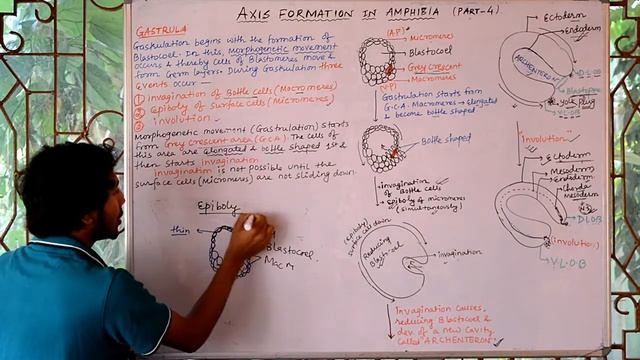 AXIS FORMATION IN AMPHIBIA (PART-4)
GASTRULA
Gastrulation begins with the formation of
Blastocoel. In this, Morphogenetic movement
occurs & thereby cells of Blastomeres move &
form Germ layers. During Gastrulation three
Events occur —
① Invagination of Bottle cells (Macromeres)
② Epiboly of Surface cells (Micromeres)
③ involution.
Morphogenetic movement (Gastrulation) starts
from Grey crescent area (G.C.A). The cells of
this area are elongated & bottle shaped 1st &
then starts invagination.
Invagination is not possible until the
surface cells (Micromeres) are not sliding down.
Epiboly
thin
Blastocoel.
Macm
(A.P)
Micromeres
Blastocoel
Grey crescent
Macromeres
(V.P)
Gastrulation starts from
G.C.A. Macromeres → elongated
& become bottle shaped.
Bottle shaped
• invagination
of Bottle cells
• Epiboly of micromeres
(simultaneously)
(Epiboly)
Surface cell down
Reducing
Blastocoel
invagination
Invagination causes,
reducing Blastocoel &
dev. of a new Cavity
called "ARCHENTERON"
Ectoderm
Endoderm
ARCHENTERON
D.L.O.B
Blastopore
yolk plug
V.L.O.B
"involution"
Ectoderm
Mesoderm
Endoderm
Chorda
Mesoderm
D.L.O.B
(involution)
V.L.O.B